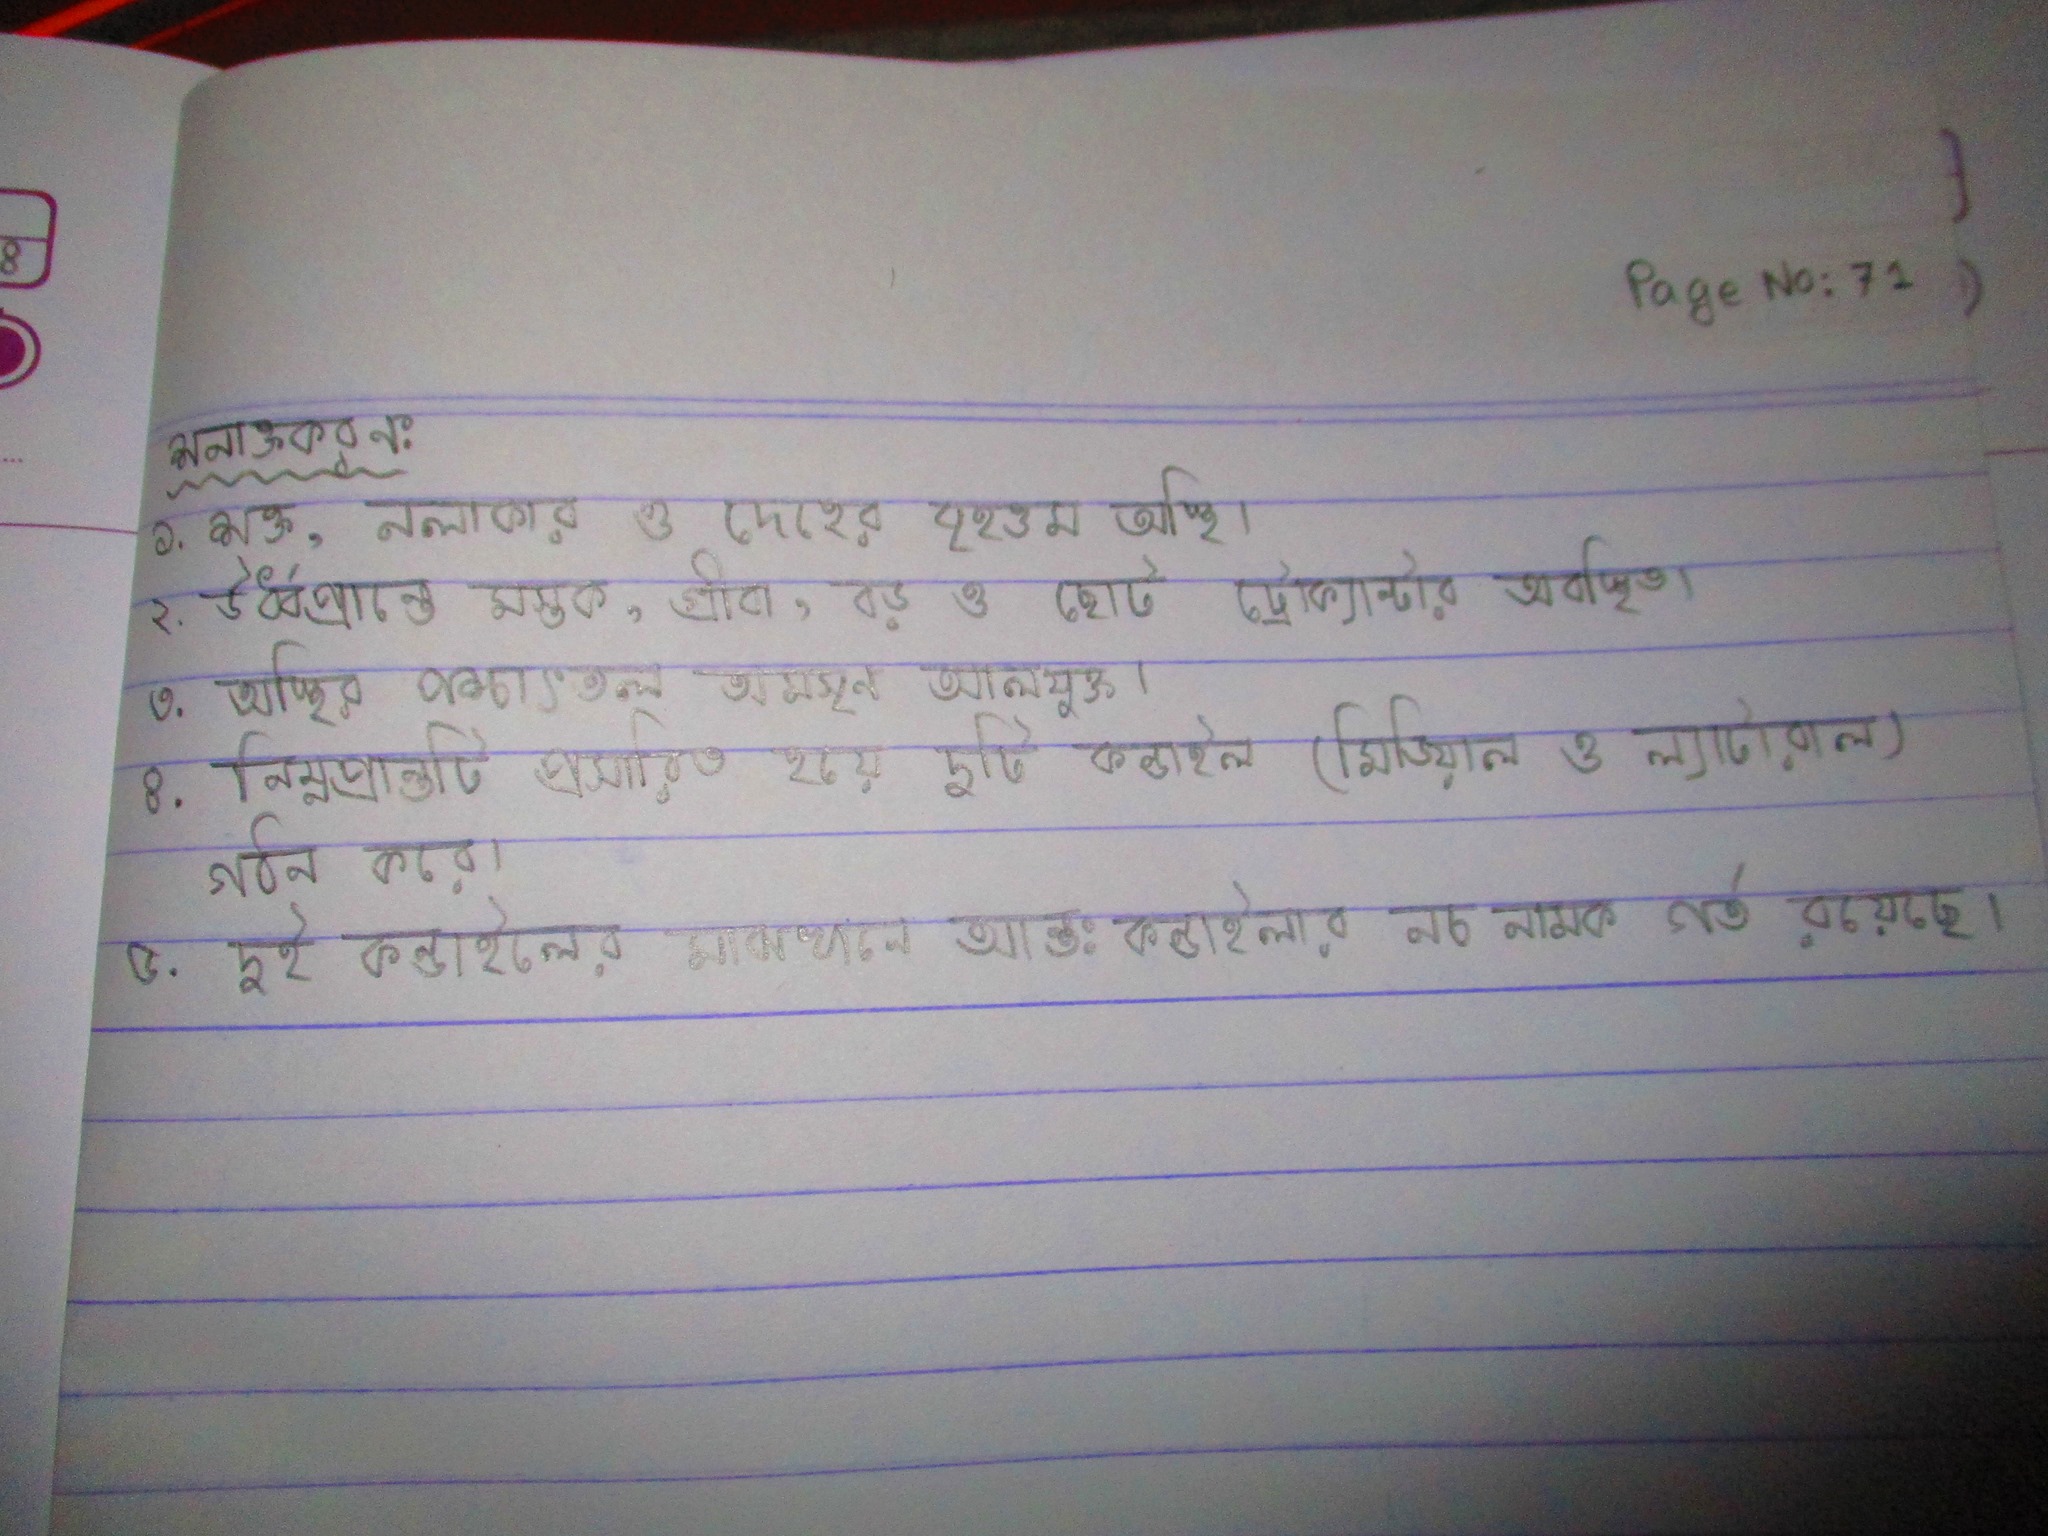 8
Page No: 71
শনাক্তকরণঃ
১. শক্ত, নলাকার ও দেহের বৃহত্তম অস্থি।
২. উর্ধ্বপ্রান্তে মস্তক, গ্রীবা, বড় ও ছোট ট্রোক্যান্টার অবস্থিত।
৩. অস্থির পশ্চাৎতল অমসৃন আলযুক্ত।
৪. নিম্নপ্রান্তটি প্রসারিত হয়ে দুটি কন্ডাইল (মিডিয়াল ও ল্যাটারাল)
গঠন করে।
৫. দুই কন্ডাইলের মাঝখানে আন্তঃকন্ডাইলার নচ নামক গর্ত রয়েছে।